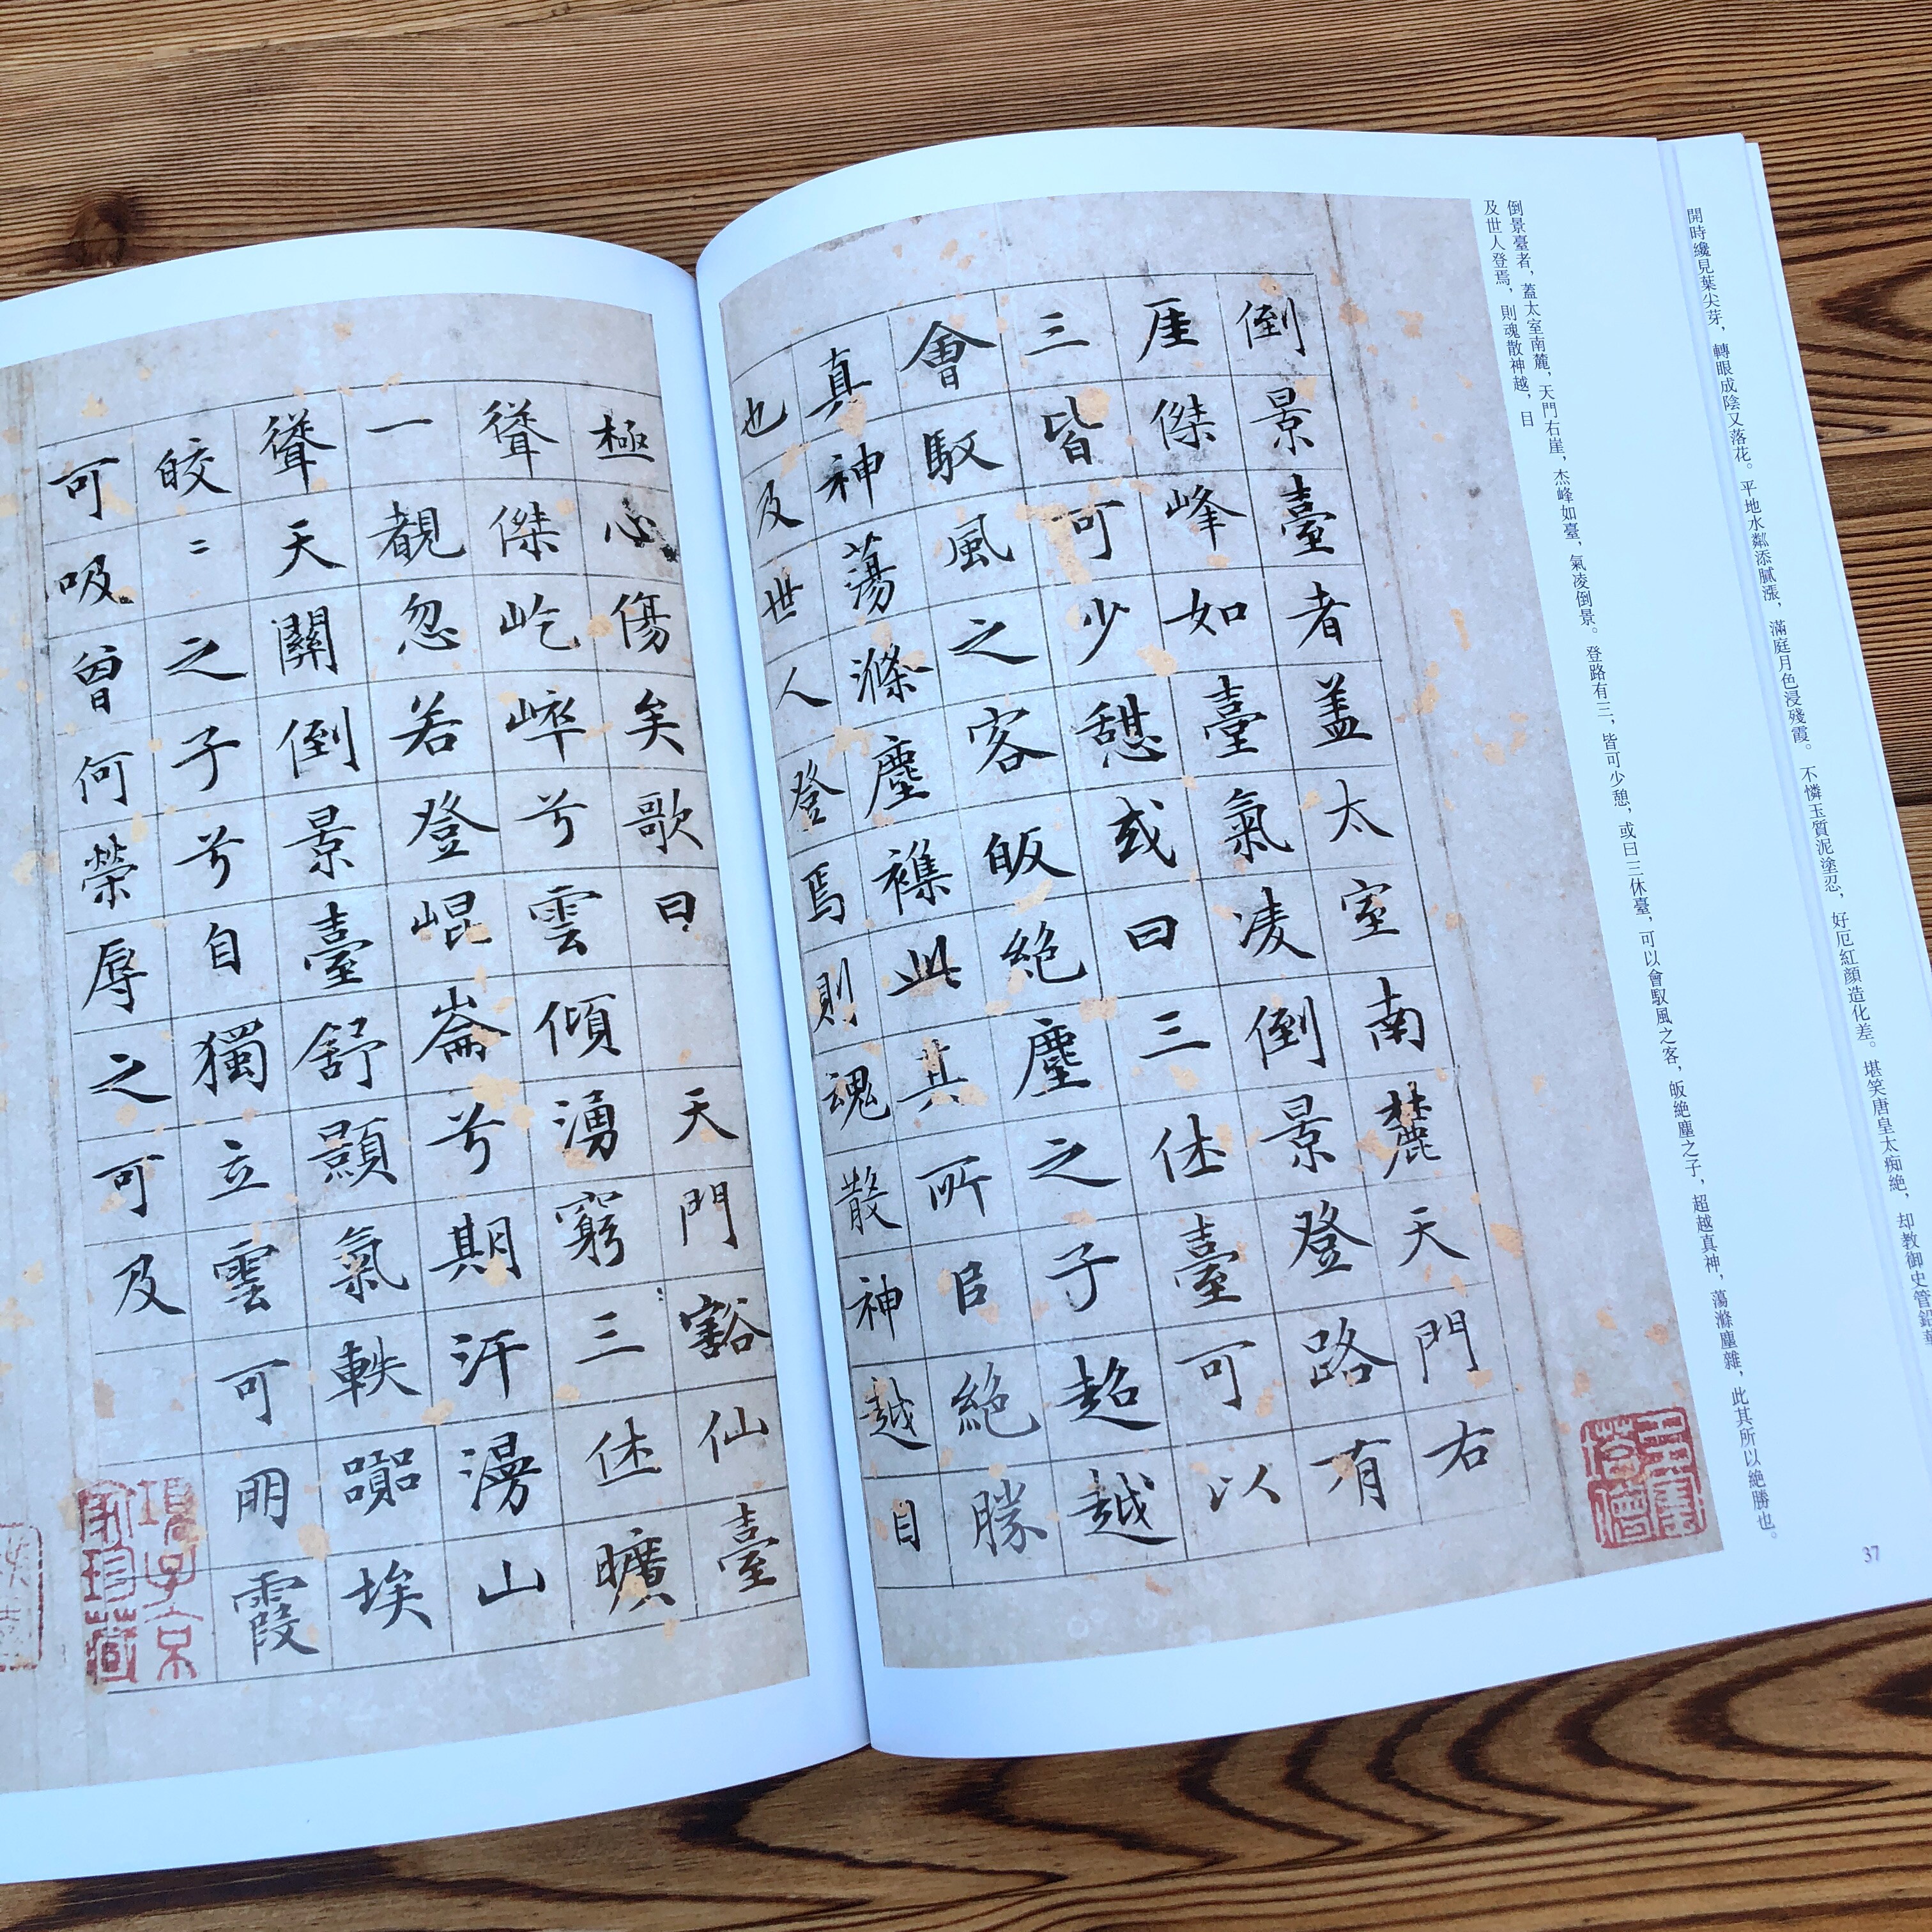 開時纔見葉尖芽，轉眼成陰又落花。平地水粼添膩漲，滿庭月色浸殘霞。不憐玉質泥塗忍，好厄紅顏造化差。堪笑唐皇太痴絶，却教御史管鉛華
倒景臺者，蓋太室南麓，天門右崖，杰峰如臺，氣凌倒景。登路有三，皆可少憩，或曰三休臺，可以會馭風之客，皈絶塵之子，超越真神，蕩滌塵雜，此其所以絶勝也。
及世人登焉，則魂散神越，目
37
倒景臺者蓋太室南麓天門右
厓傑峰如臺氣凌倒景登路有
三皆可少憩或曰三休臺可以
會馭風之客皈絕塵之子超越
真神蕩滌塵襍此其所㠯絕勝
也及世人登焉則魂散神越目
極心傷矣歌曰 天門豁仙臺
聳傑屹崒兮雲傾湧窮三休曠
一覩忽若登崐崙兮期汗漫山
聳天關倒景臺舒顥氣軼嚻埃
皎〻之子兮自獨立雲可朋霞
可吸曾何榮辱之可及
項子京
家珍藏